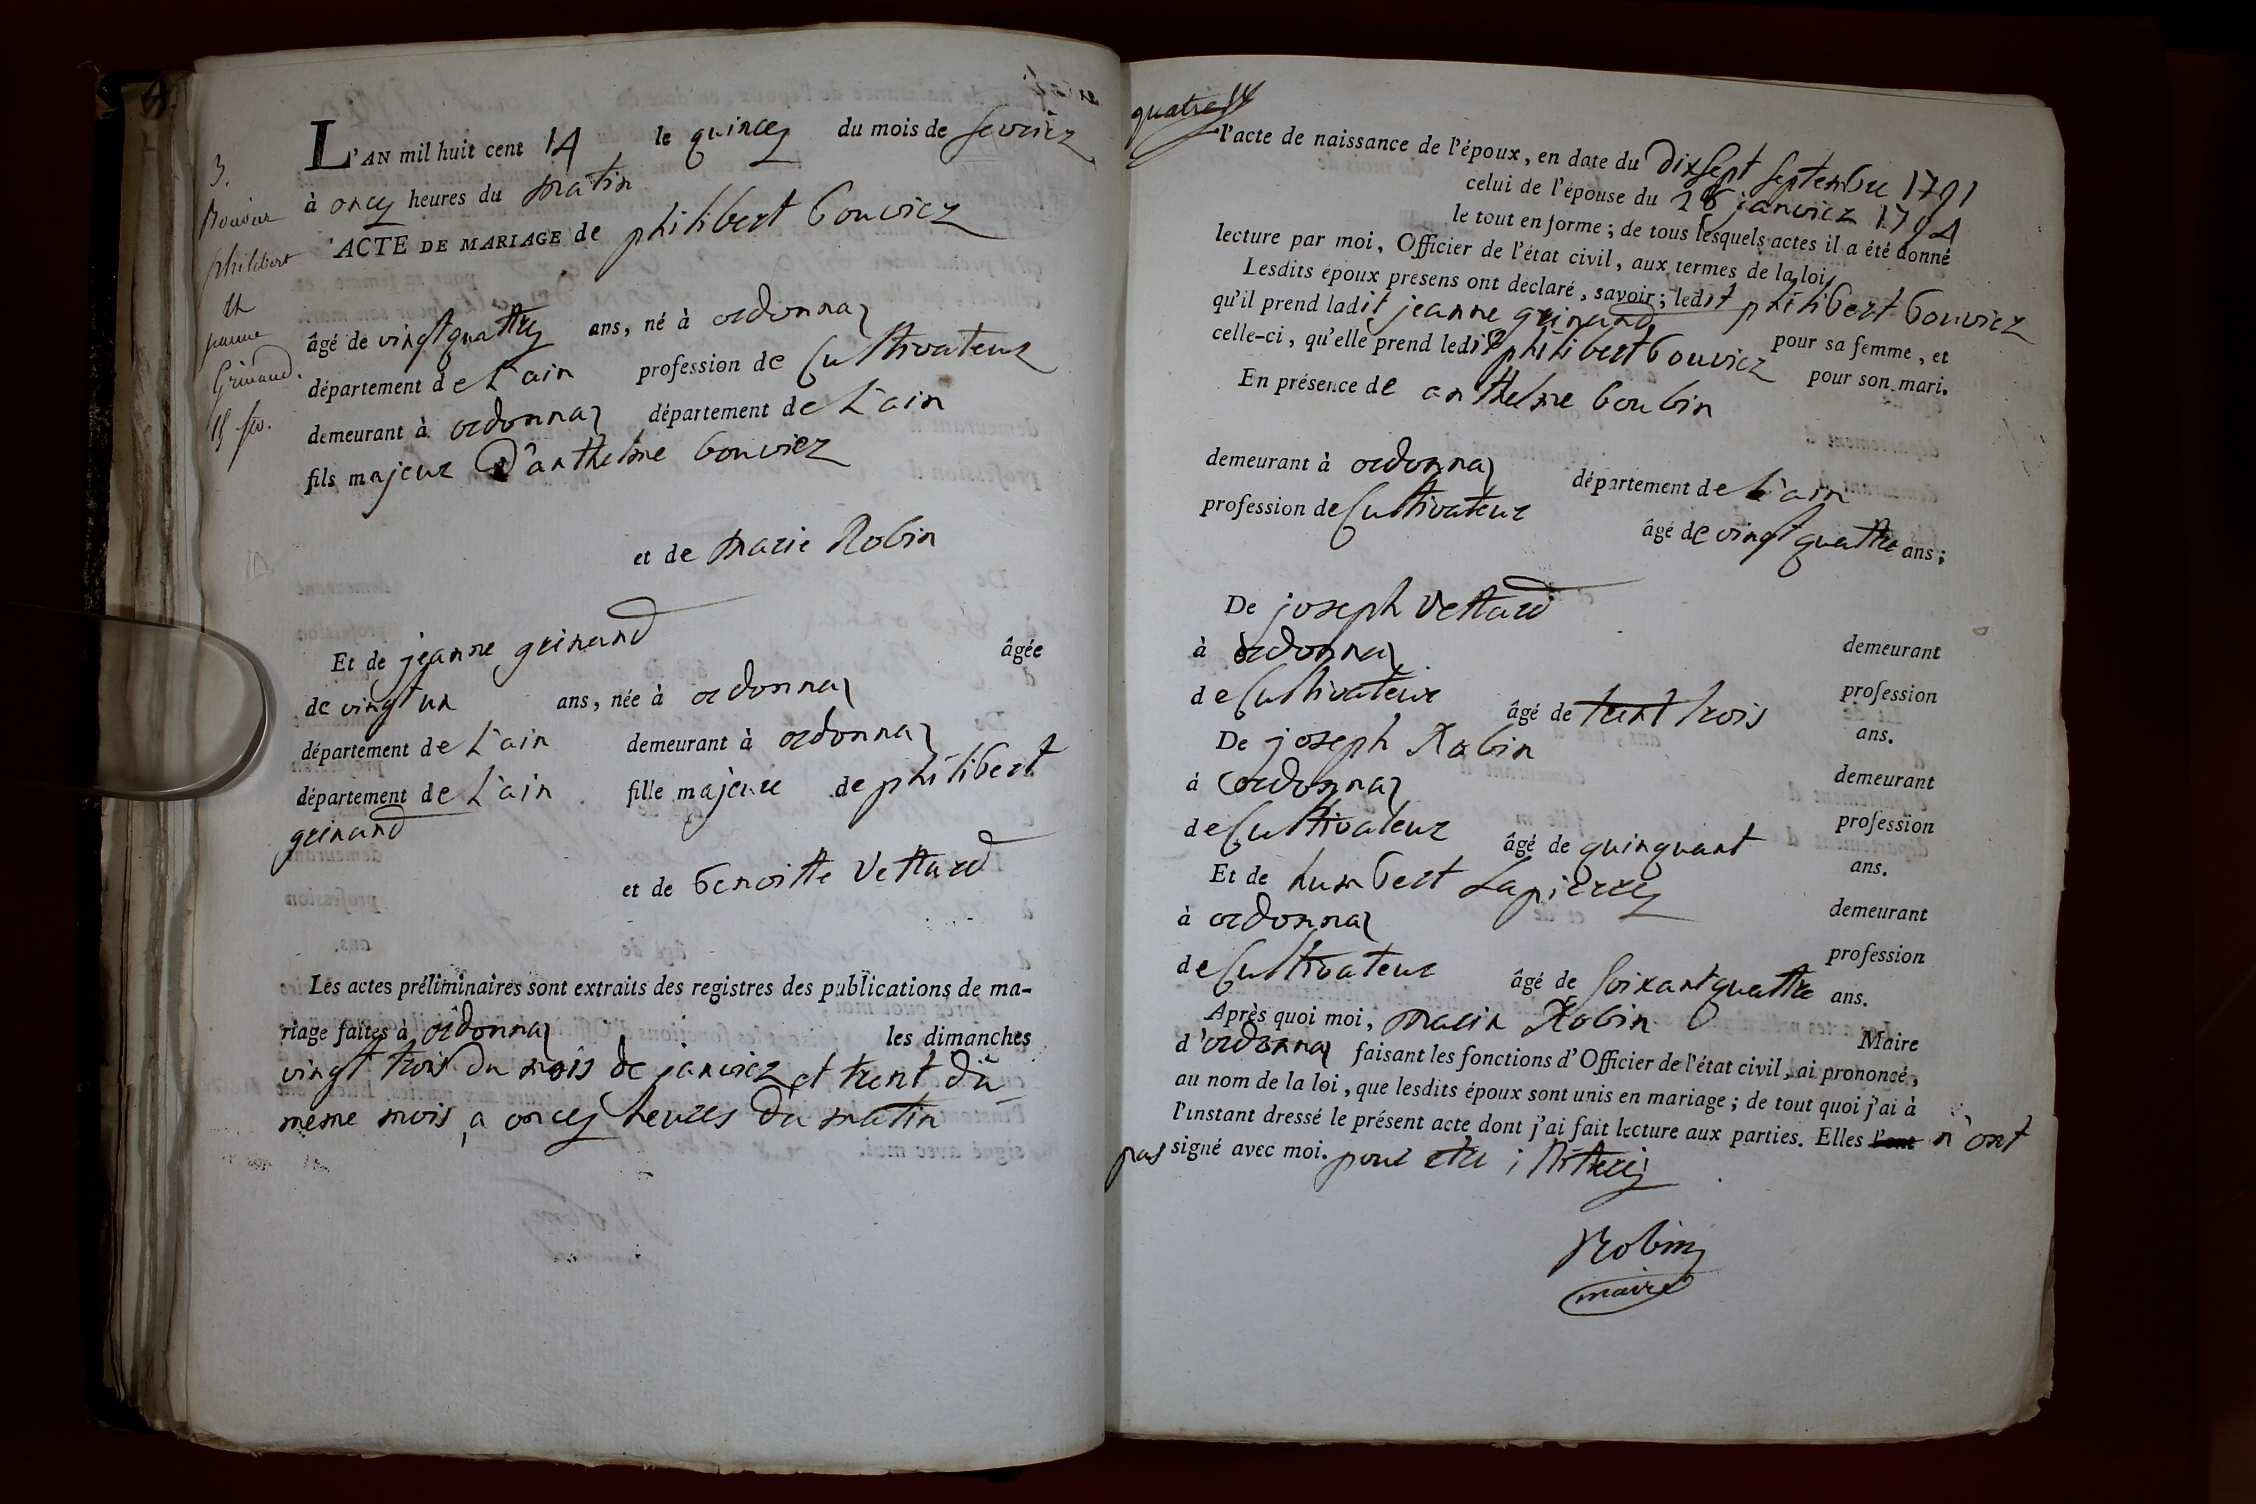 3.
Bouvier
philibert
et
jeanne
Grinand.
15 fev.
L'AN mil huit cent 14 le quincez du mois de fevriez
à oncez heures du matin
ACTE DE MARIAGE de philibert bouviez
âgé de vingtquattre ans, né à ordonnaz
département de L'ain profession de Cultivateur
demeurant à ordonnaz département de L'ain
fils majeur d'anthelme bouviez
et de marie Robin
Et de jeanne grinand âgée
de vingt un ans, née à ordonnaz
département de L'ain demeurant à ordonnaz
département de L'ain fille majeure de philibert
grinand
et de benoitte Vettard
Les actes préliminaires sont extraits des registres des publications de ma-
riage faites à ordonnaz les dimanches
vingt trois du mois de janviez et trent du
même mois, a oncez heures du matin
quatre
l'acte de naissance de l'époux, en date du dixsept septembre 1791
celui de l'épouse du 28 janviez 1794
le tout en forme; de tous lesquels actes il a été donné
lecture par moi, Officier de l'état civil, aux termes de la loi.
Lesdits époux présens ont déclaré, savoir; ledit philibert bouviez
qu'il prend ladit jeanne grinand pour sa femme, et
celle-ci, qu'elle prend ledit philibert bouviez pour son mari.
En présence de anthelme boubin
demeurant à ordonnaz département de L'ain
profession de Cultivateur âgé de vingt quattre ans;
De joseph Vettard demeurant
à ordonnaz profession
de Cultivateur âgé de trent trois ans.
De joseph Robin demeurant
à ordonnaz profession
de Cultivateur âgé de quinquant ans.
Et de humbert Lapierrez demeurant
à ordonnaz profession
de Cultivateur âgé de soixantquattre ans.
Après quoi moi, marin Robin Maire
d'ordonnaz faisant les fonctions d'Officier de l'état civil, ai prononcé,
au nom de la loi, que lesdits époux sont unis en mariage; de tout quoi j'ai à
l'instant dressé le présent acte dont j'ai fait lecture aux parties. Elles l'ont n'ont
pas signé avec moi. pour etre
Robin
maire